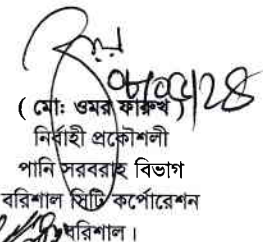 ০৮/০৫/২৪
( মোঃ ওমর ফারুখ )
নির্বাহী প্রকৌশলী
পানি সরবরাহ বিভাগ
বরিশাল সিটি কর্পোরেশন
বরিশাল।